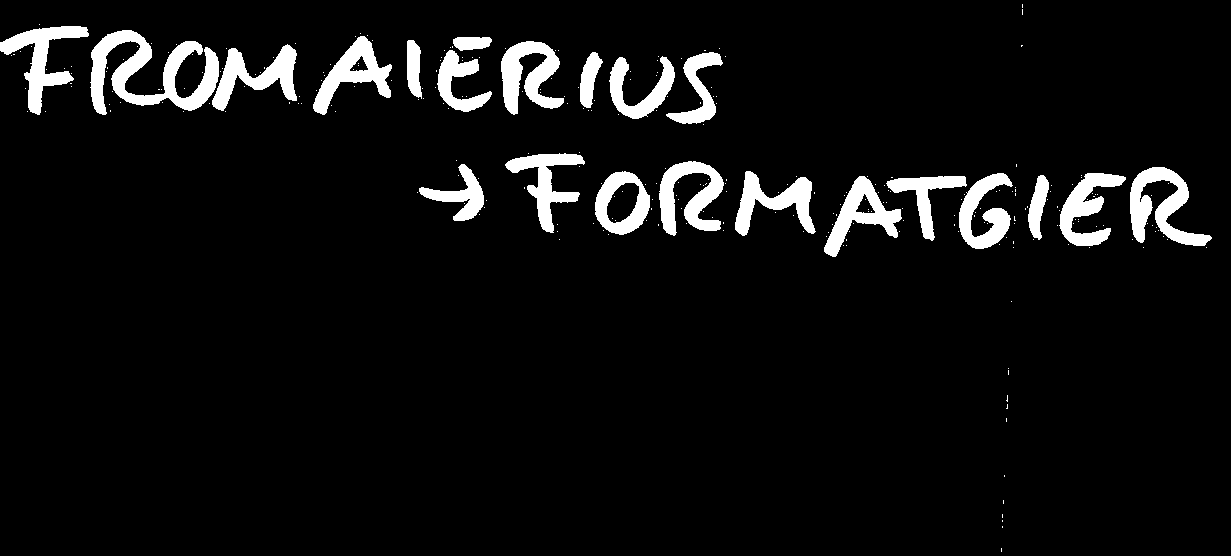 FROMAIERIUS
→ FORMATGIER